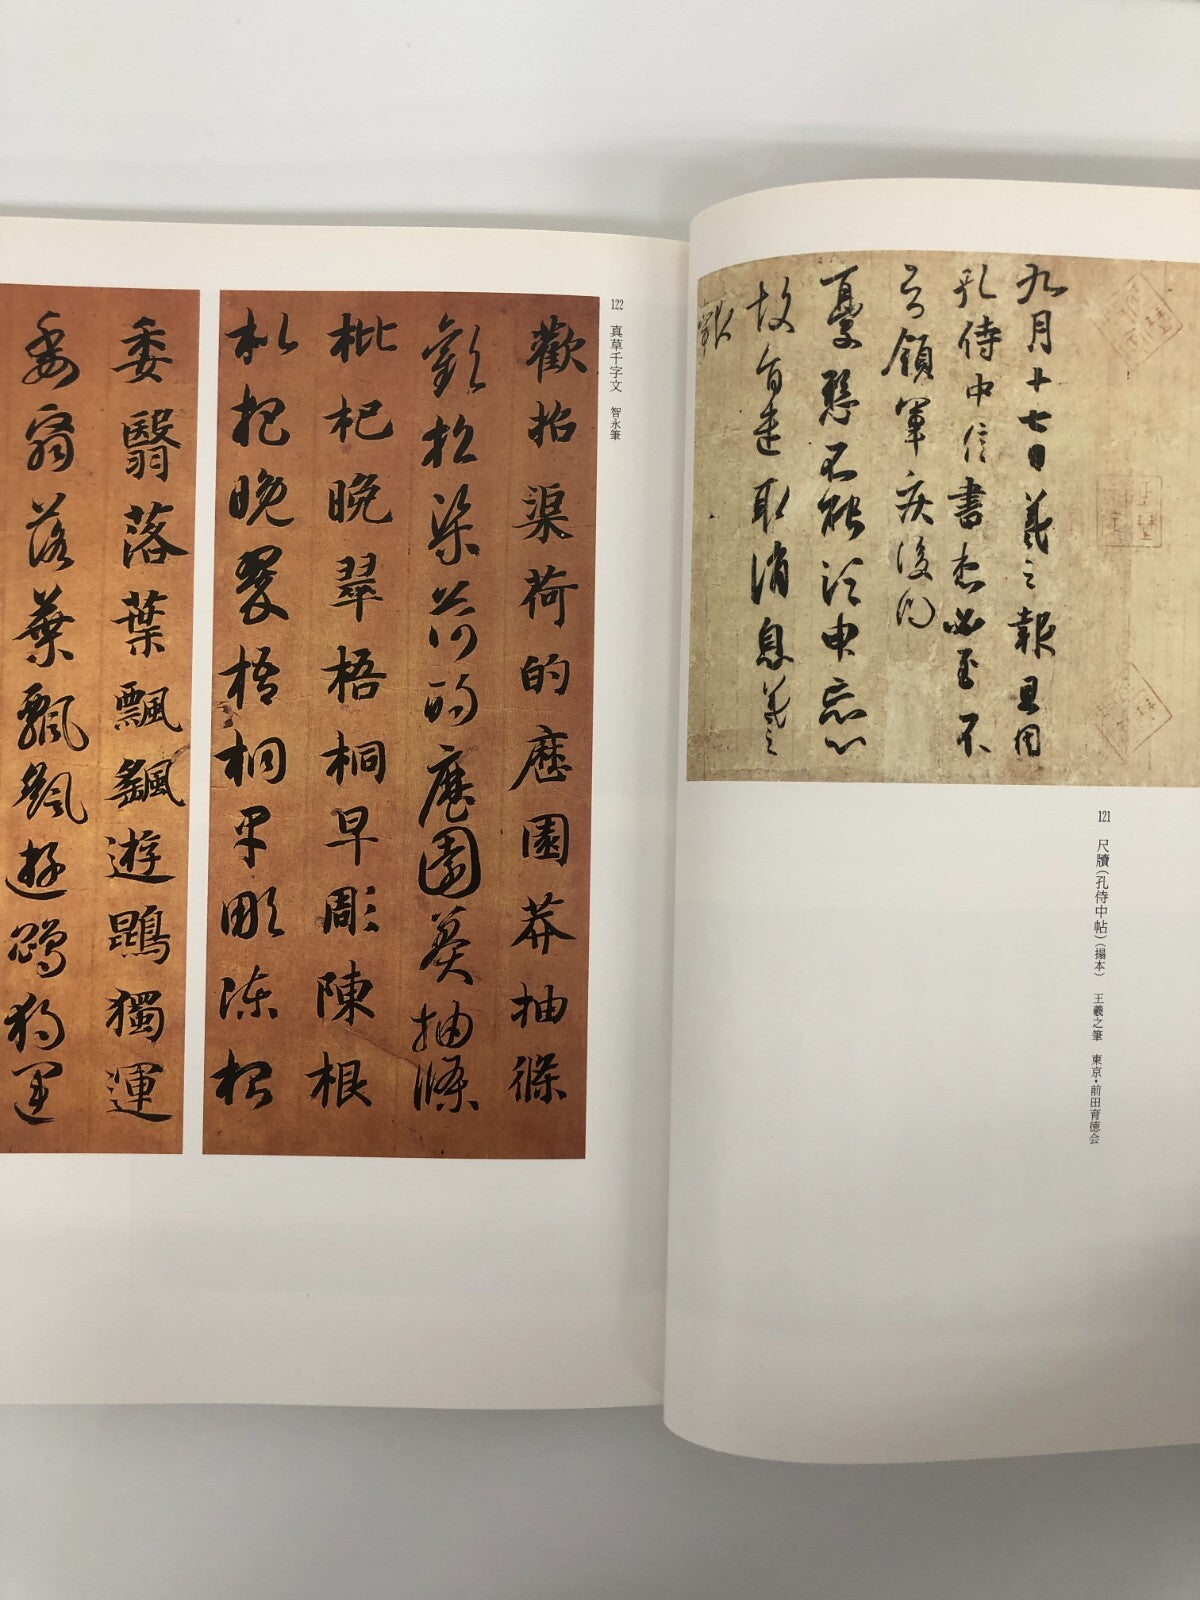 九月十七日羲之報且因
孔侍中信書想必至不
知領軍疾後問
憂懸不能須申忘心
故旬遣取消息羲之
報
121 尺牘(孔侍中帖)(搨本) 王羲之筆 東京・前田育徳会
122 真草千字文 智永筆
歡招渠荷的歷園莽抽條
歡招渠荷的歷園莽抽條
枇杷晚翠梧桐早彫陳根
枇杷晚翠梧桐早彫陳根
委翳落葉飄颻遊鵾獨運
委翳落葉飄颻遊鵾獨運